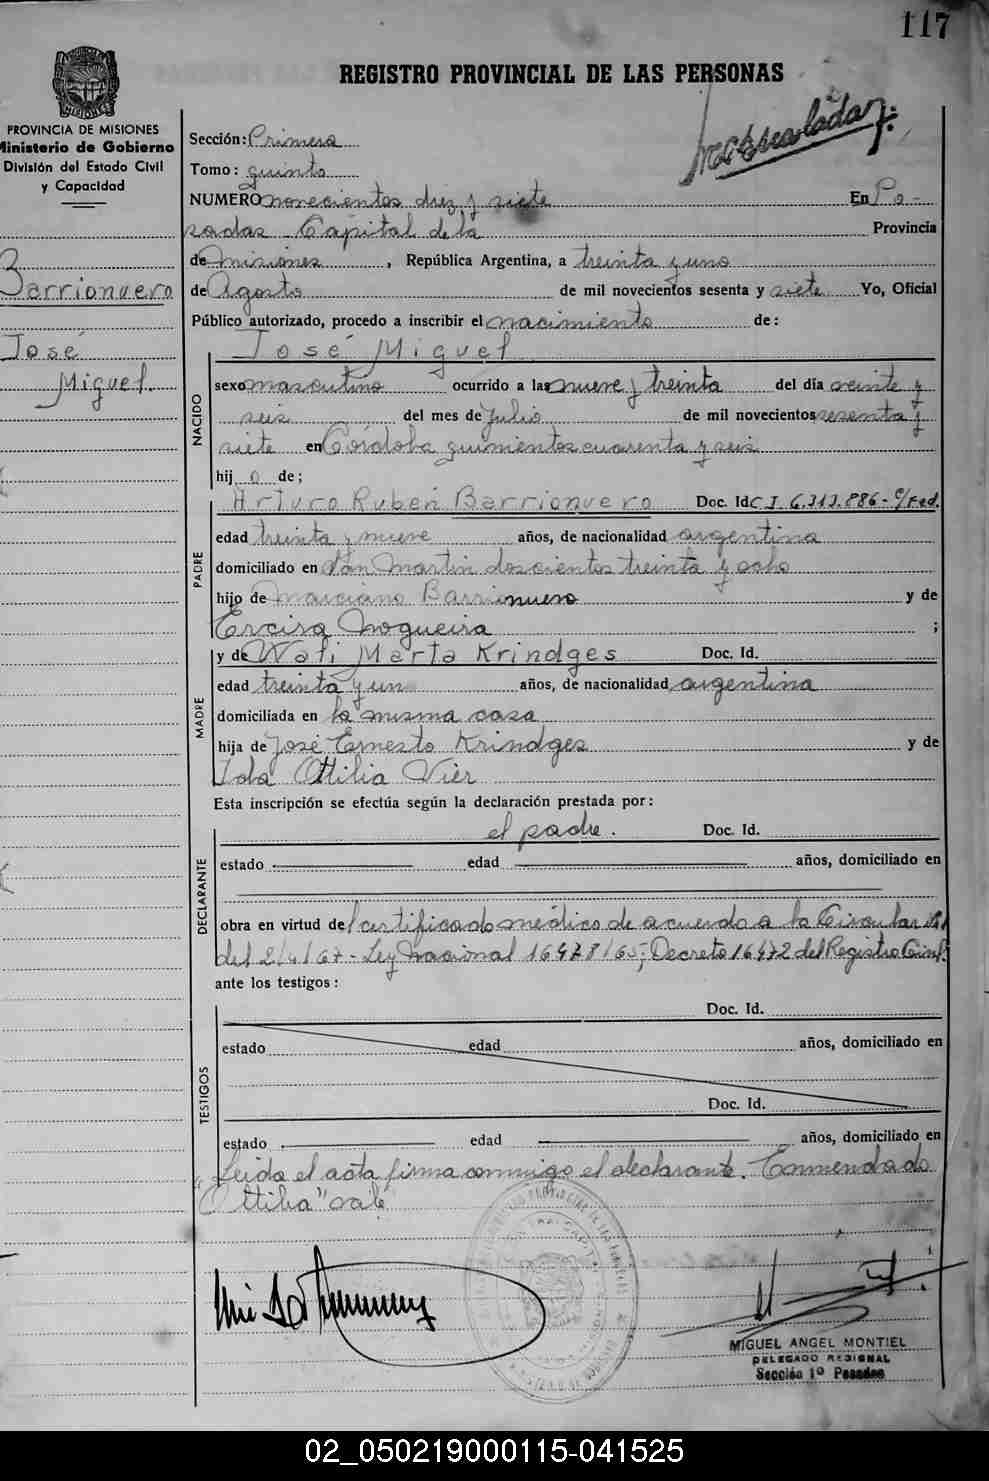 117
REGISTRO PROVINCIAL DE LAS PERSONAS
PROVINCIA DE MISIONES
Ministerio de Gobierno
División del Estado Civil
y Capacidad
Sección: Primera
Tomo: quinto
NUMERO novecientos diez y siete En Po-
sadas Capital de la Provincia
de Misiones, República Argentina, a treinta y uno
Barrionuevo
de Agosto de mil novecientos sesenta y siete Yo, Oficial
Público autorizado, procedo a inscribir el nacimiento de:
José
Miguel
José Miguel
NACIDO
sexo masculino ocurrido a las nueve y treinta del día veinte y
seis del mes de Julio de mil novecientos sesenta y
siete en Córdoba quinientos cuarenta y seis
hij o de;
PADRE
Arturo Rubén Barrionuevo Doc. Id. C I. 6.313.886- C/Fed.
edad treinta y nueve años, de nacionalidad argentina
domiciliado en San Martin doscientos treinta y ocho
hijo de Marciano Barrionuevo y de
Ercira Nogueira ;
MADRE
y de Wali Marta Krindges Doc. Id.
edad treinta y un años, de nacionalidad argentina
domiciliada en la misma casa
hija de José Ernesto Krindges y de
Ida Ottilia Vier
Esta inscripción se efectúa según la declaración prestada por:
DECLARANTE
el padre. Doc. Id.
estado edad años, domiciliado en
obra en virtud del certificado médico de acuerdo a la Circular
del 2/4/67 - Ley Nacional 16478/65; Decreto 16472 del Registro Civil
ante los testigos:
TESTIGOS
Doc. Id.
estado edad años, domiciliado en
Doc. Id.
estado edad años, domiciliado en
Leida el acta firma conmigo el declarante. Enmendado
"Ottilia" vale
MIGUEL ANGEL MONTIEL
DELEGADO REGIONAL
Sección 1º Posadas
02_050219000115-041525